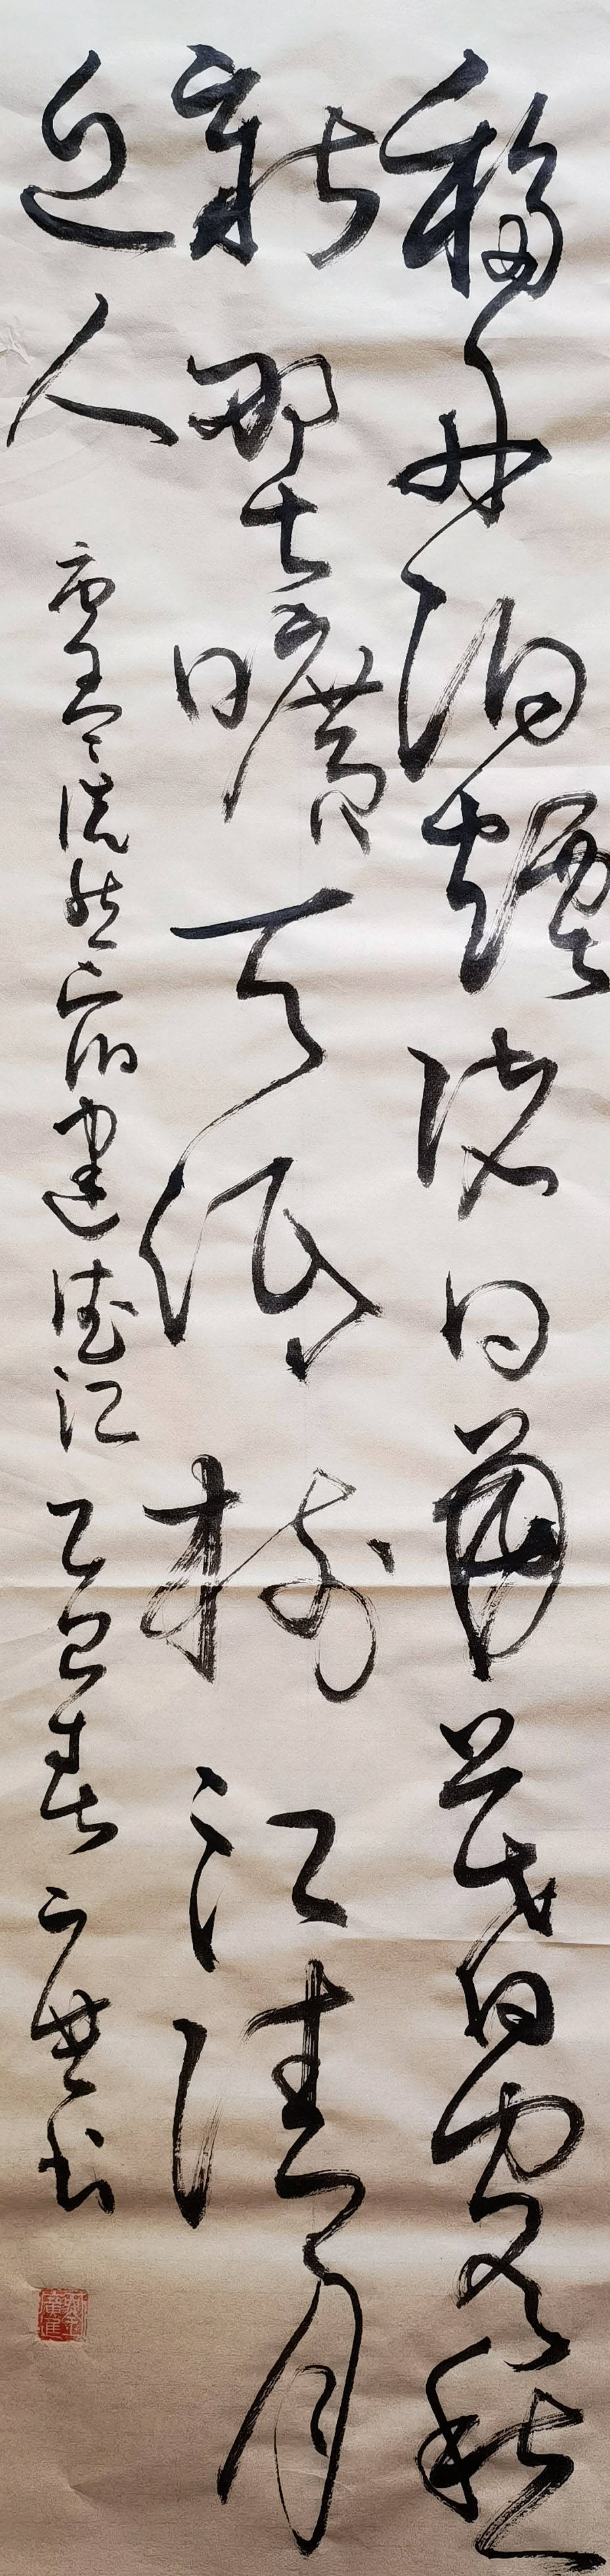 移舟泊煙渚日暮客愁
新野曠天低樹江清月
近人
唐孟浩然宿建德江 乙巳春 书